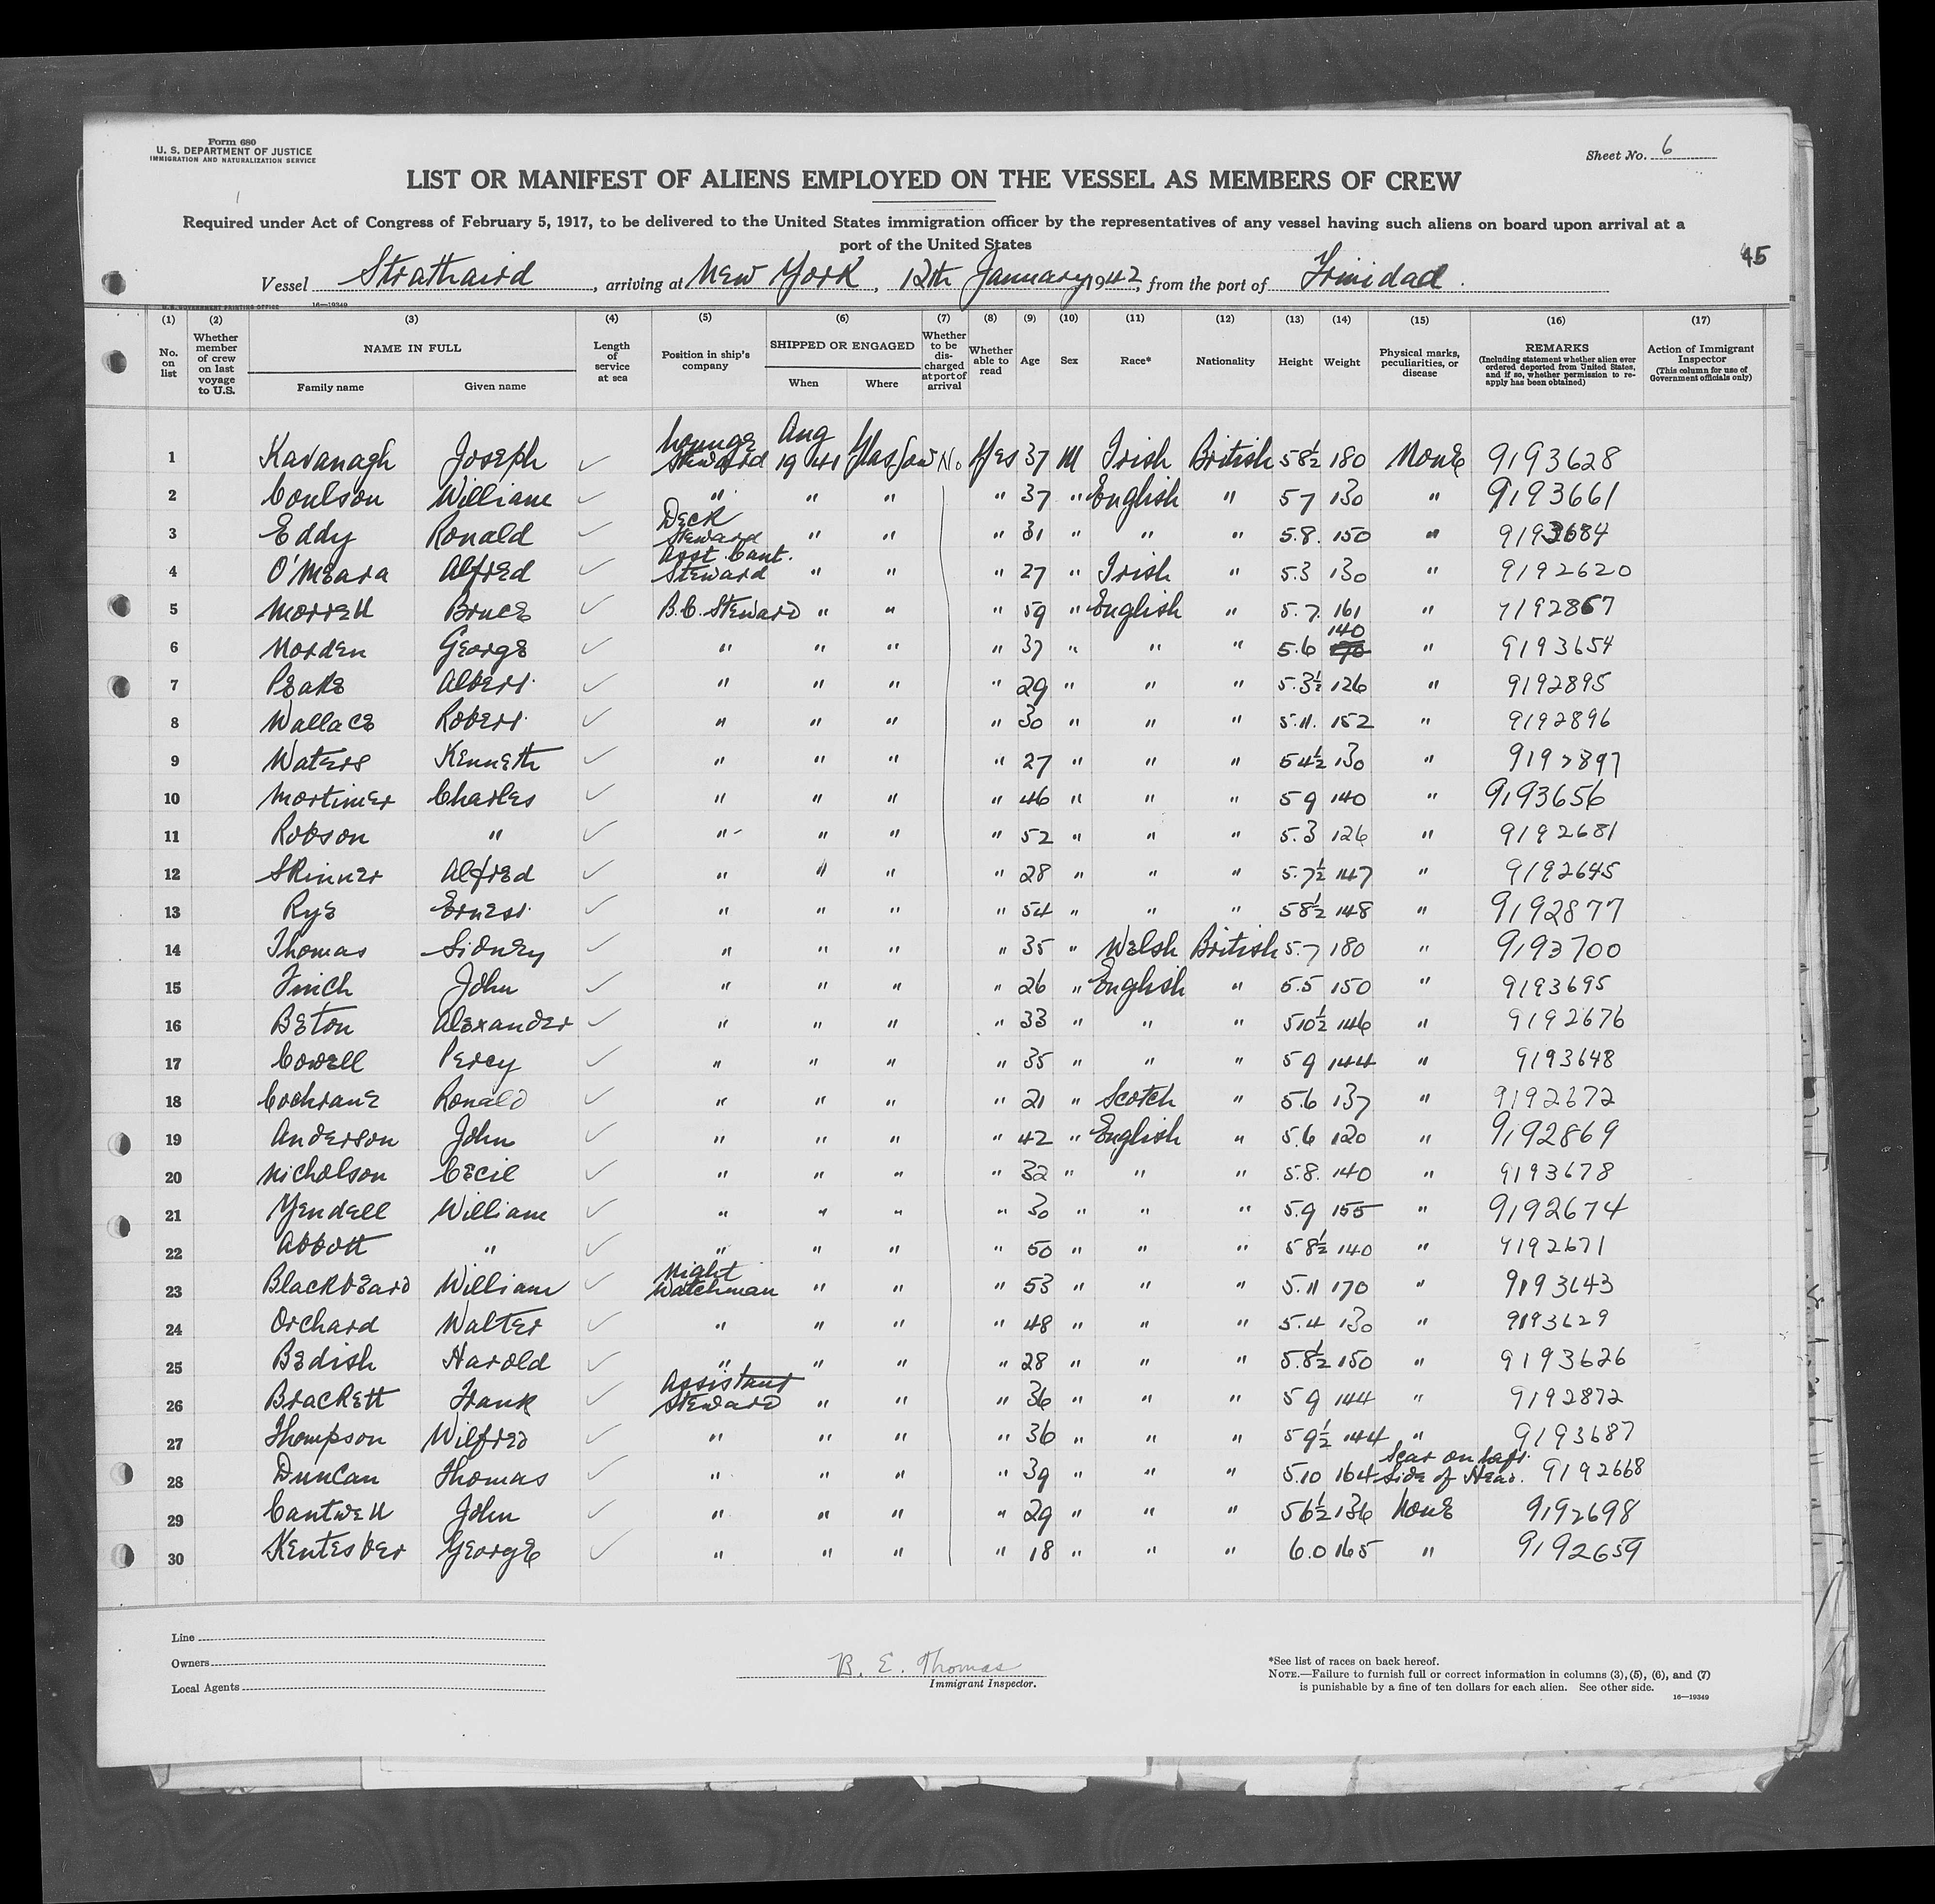 Form 680
U. S. DEPARTMENT OF JUSTICE
IMMIGRATION AND NATURALIZATION SERVICE
Sheet No. 6
LIST OR MANIFEST OF ALIENS EMPLOYED ON THE VESSEL AS MEMBERS OF CREW
Required under Act of Congress of February 5, 1917, to be delivered to the United States immigration officer by the representatives of any vessel having such aliens on board upon arrival at a
port of the United States
45
Vessel Strathaird, arriving at New York, 12th January 1942, from the port of Trinidad.
U. S. GOVERNMENT PRINTING OFFICE 16—19349
(1) (2) (3) (4) (5) (6) (7) (8) (9) (10) (11) (12) (13) (14) (15) (16) (17)
No. on list Whether member of crew on last voyage to U.S. NAME IN FULL Family name Given name Length of service at sea Position in ship's company SHIPPED OR ENGAGED When Where Whether to be discharged at port of arrival Whether able to read Age Sex Race* Nationality Height Weight Physical marks, peculiarities, or disease REMARKS (Including statement whether alien ever ordered deported from United States, and if so, whether permission to reapply has been obtained) Action of Immigrant Inspector (This column for use of Government officials only)
1 Kavanagh Joseph ✓ Lounge Steward Aug 1941 Glasgow No Yes 37 M Irish British 5 8½ 180 None 9193628
2 Coulson William ✓ " " " " 37 " English " 5 7 130 " 9193661
3 Eddy Ronald ✓ Deck Steward " " " 31 " " " 5.8. 150 " 9193684
4 O'Meara Alfred ✓ Asst. Cant. Steward " " " 27 " Irish " 5.3 130 " 9192620
5 Morrell Bruce ✓ B.C. Steward " " " 59 " English " 5.7. 161 " 9192867
6 Norden George ✓ " " " " 37 " " " 5.6 140 " 9193654
7 Peake Albert ✓ " " " " 29 " " " 5.3½ 126 " 9192895
8 Wallace Robert ✓ " " " " 30 " " " 5.11. 152 " 9192896
9 Waters Kenneth ✓ " " " " 27 " " " 5 4½ 130 " 9192897
10 Mortimer Charles ✓ " " " " 46 " " " 5 9 140 " 9193656
11 Robson " ✓ " " " " 52 " " " 5.3 126 " 9192681
12 Skinner Alfred ✓ " " " " 28 " " " 5.7½ 147 " 9192645
13 Rye Ernest ✓ " " " " 54 " " " 5 8½ 148 " 9192877
14 Thomas Sidney ✓ " " " " 35 " Welsh British 5.7 180 " 9193700
15 Finch John ✓ " " " " 26 " English " 5.5 150 " 9193695
16 Beton Alexander ✓ " " " " 33 " " " 5 10½ 146 " 9192676
17 Cowell Percy ✓ " " " " 35 " " " 5 9 144 " 9193648
18 Cochrane Ronald ✓ " " " " 21 " Scotch " 5.6 137 " 9192672
19 Anderson John ✓ " " " " 42 " English " 5.6 120 " 9192869
20 Nicholson Cecil ✓ " " " " 32 " " " 5.8. 140 " 9193678
21 Yendell William ✓ " " " " 30 " " " 5.9 155 " 9192674
22 Abbott " ✓ " " " " 50 " " " 5 8½ 140 " 9192671
23 Blackbeard William ✓ Night Watchman " " " 53 " " " 5.11 170 " 9193643
24 Orchard Walter ✓ " " " " 48 " " " 5.4 130 " 9193629
25 Bedish Harold ✓ " " " " 28 " " " 5.8½ 150 " 9193626
26 Brackett Frank ✓ Assistant Steward " " " 36 " " " 5 9 144 " 9192872
27 Thompson Wilfred ✓ " " " " 36 " " " 5 9½ 144 " 9193687
28 Duncan Thomas ✓ " " " " 39 " " " 5.10 164 Scar on left side of Head. 9192668
29 Cantwell John ✓ " " " " 29 " " " 5 6½ 136 None 9192698
30 Kentesber George ✓ " " " " 18 " " " 6.0 165 " 9192659
Line
Owners
Local Agents
B. E. Thomas
Immigrant Inspector.
*See list of races on back hereof.
NOTE.—Failure to furnish full or correct information in columns (3), (5), (6), and (7)
is punishable by a fine of ten dollars for each alien. See other side.
16—19349